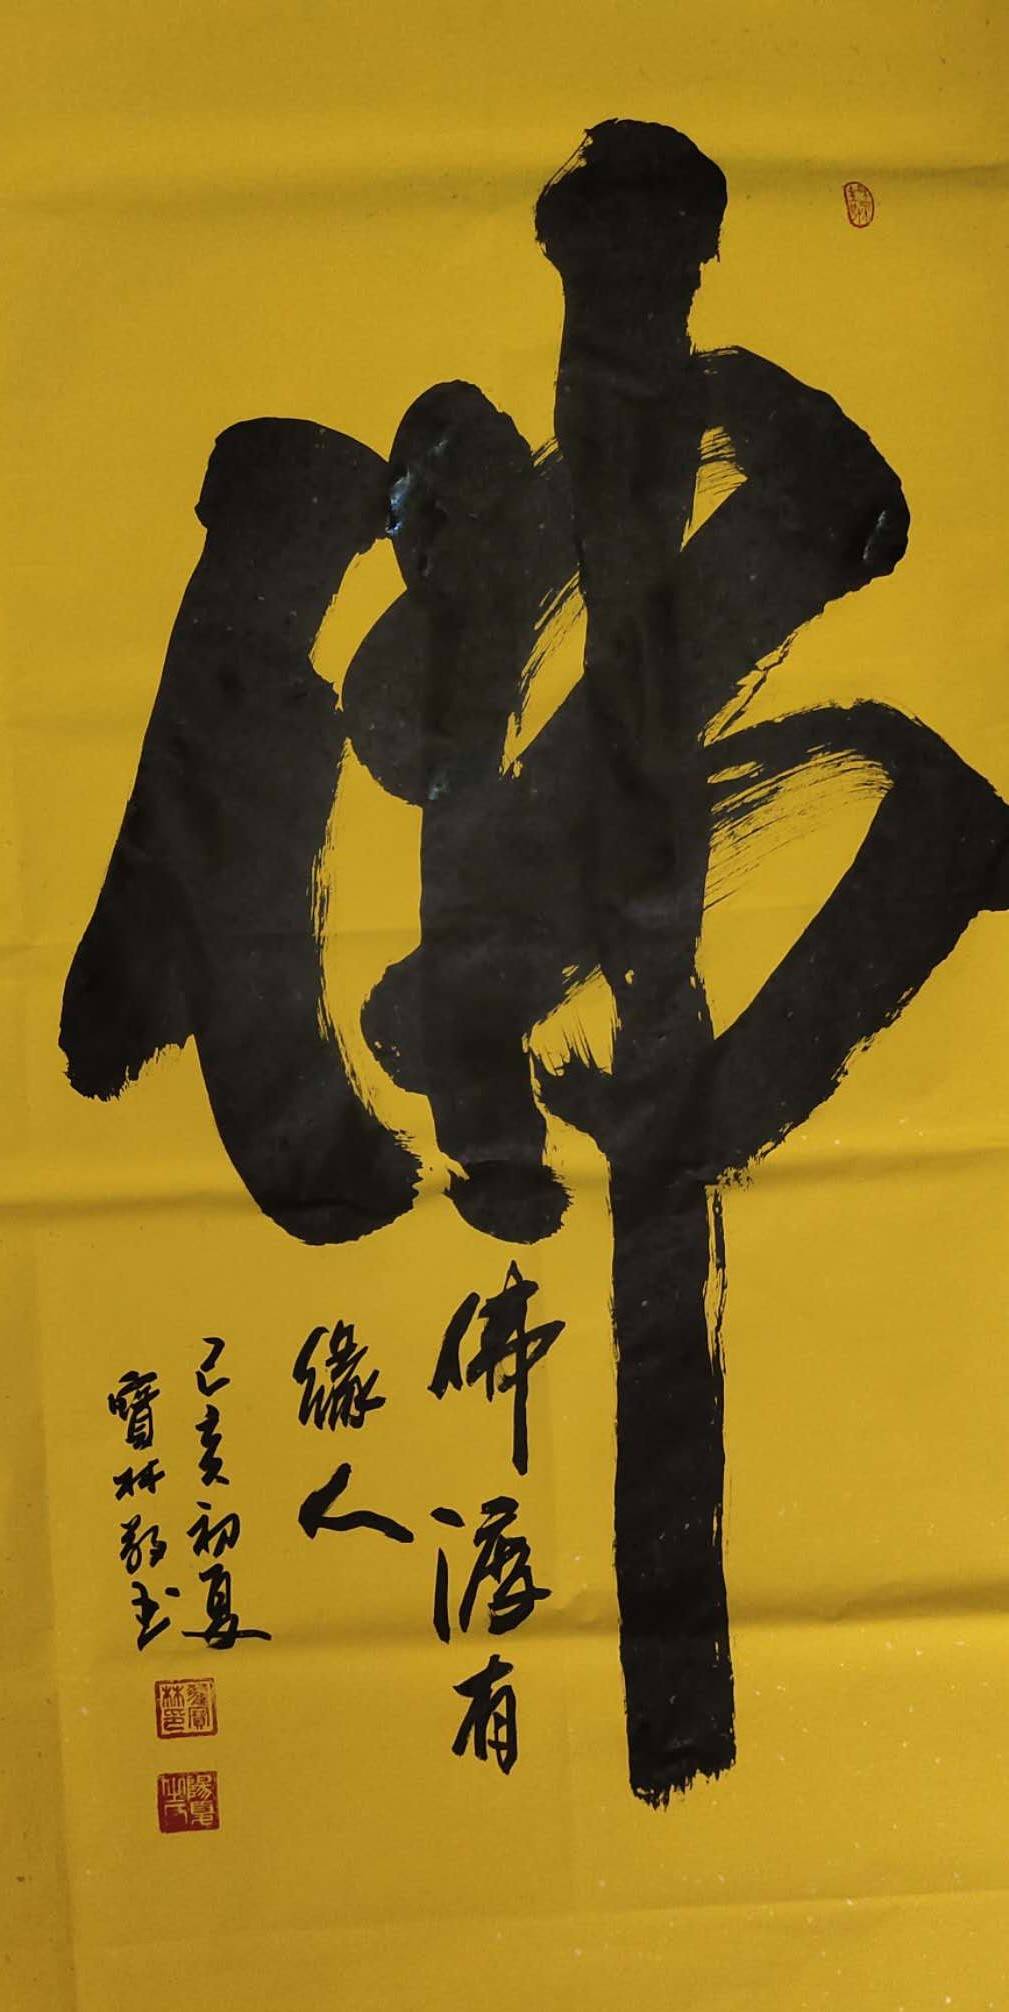 佛
佛渡有
缘人
己亥初夏
寶林敬书